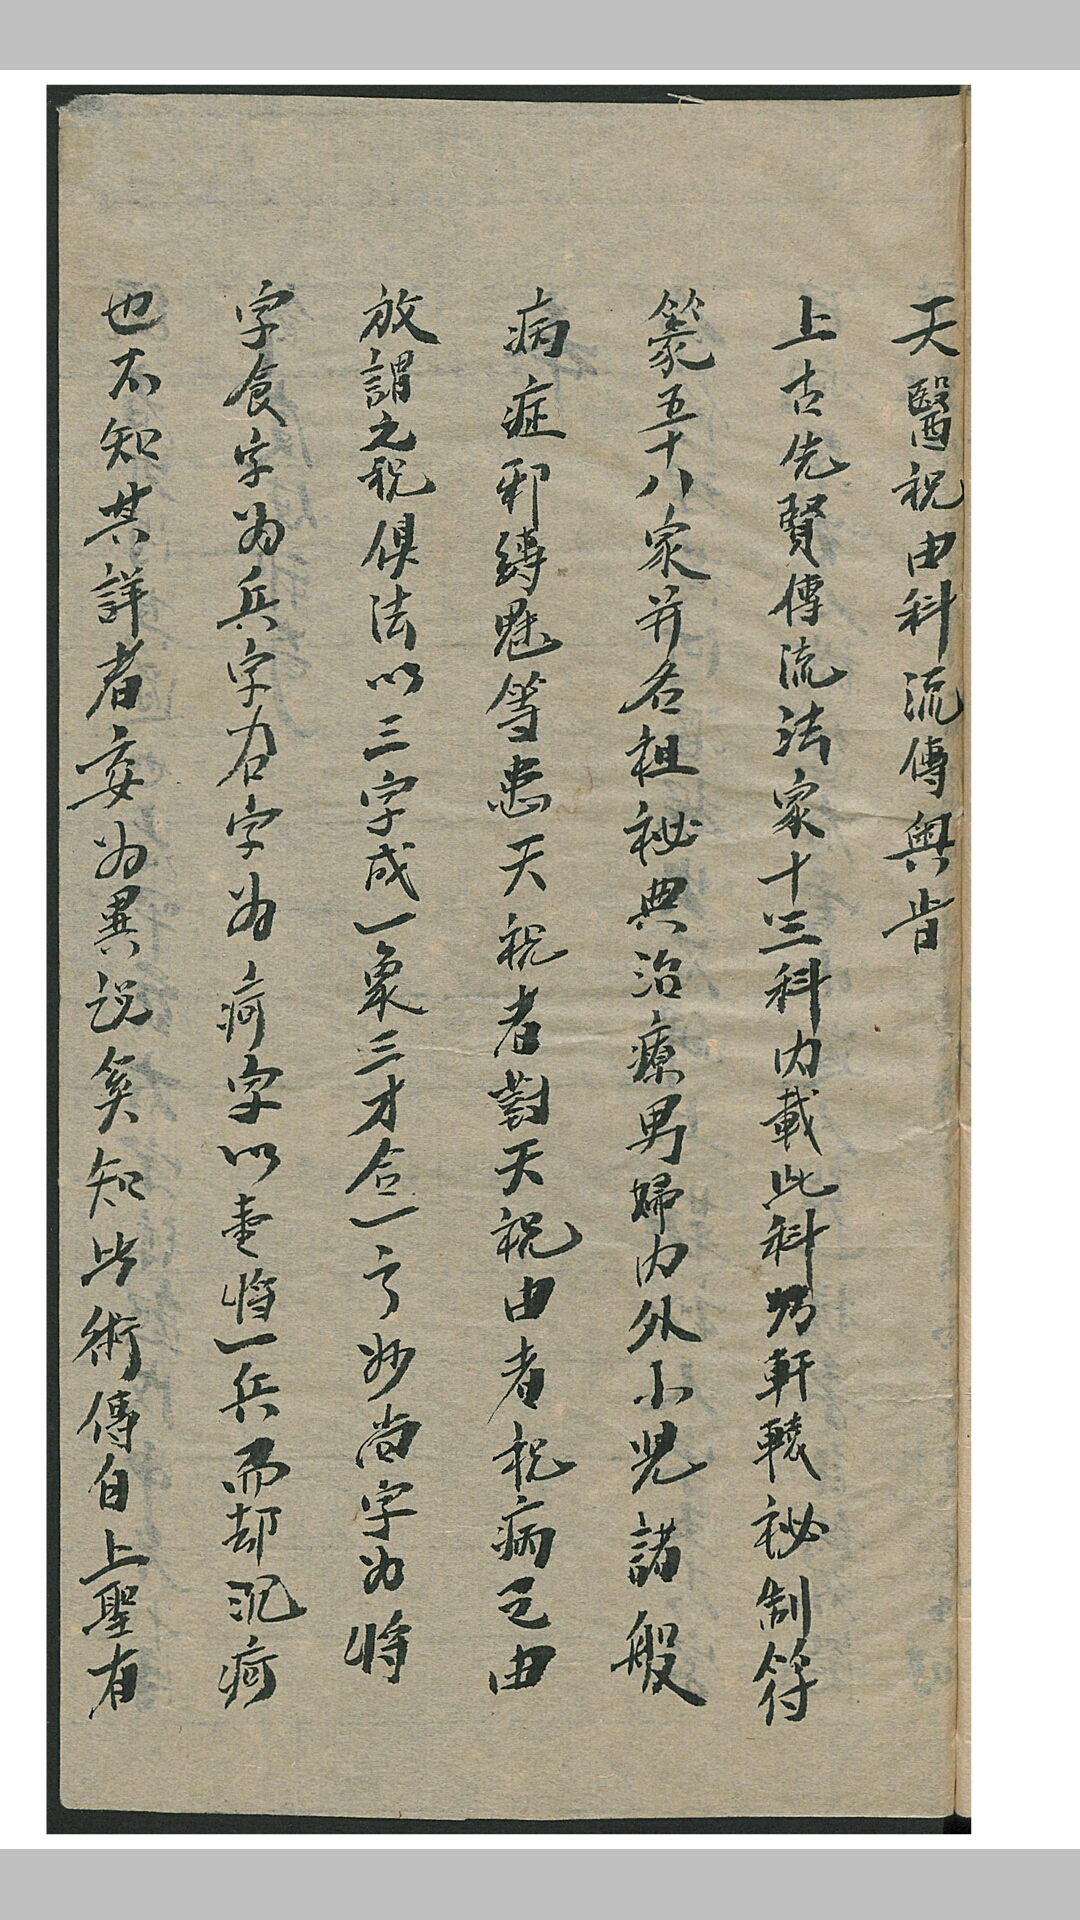 天醫祝由科流傳奧旨
上古先賢傳流法家十三科内載此科乃軒轅祕制符
篆五十八家并各祖祕典治療男婦内外小児諸般
病症邪縛魅等患天祝者對天祝由者祝病之由
故謂之祝俱法以三字成一象三才合一之妙尚字为将
字食字为兵字右字为疴字以壹将一兵而却沉疴
也不知其詳者妄为異説奚知此術傳自上聖有